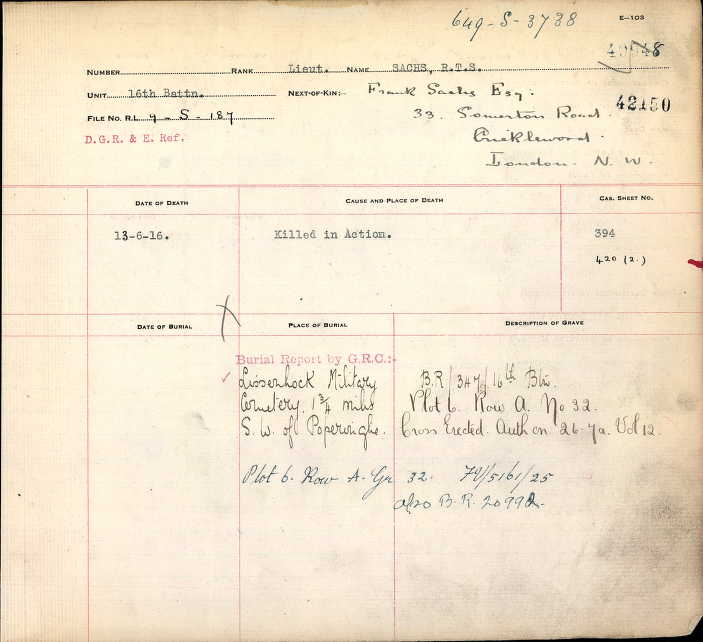 649-S-3738
E-103
NUMBER RANK Lieut. NAME SACHS, R.T.S.
UNIT 16th Battn. NEXT-OF-KIN:- Frank Sachs Esq.
33. Somerton Road.
42150
FILE NO. R.L. 9-S-187
D.G.R. & E. Ref.
Cricklewood.
London. N. W.
DATE OF DEATH CAUSE AND PLACE OF DEATH CAS. SHEET NO.
13-6-16. Killed in Action. 394
420 (2.)
DATE OF BURIAL PLACE OF BURIAL DESCRIPTION OF GRAVE
Burial Report by G.R.C.:-
Lissenhock Military B.R/347/16th Btn.
Cemetery. 1 3/4 miles Plot 6. Row A. No 32.
S. W. of Poperinghe. Cross Erected. Auth on 26.7a. Vol 12.
Plot 6. Row A. Gr 32. 74/5161/25
also B.R. 20992.